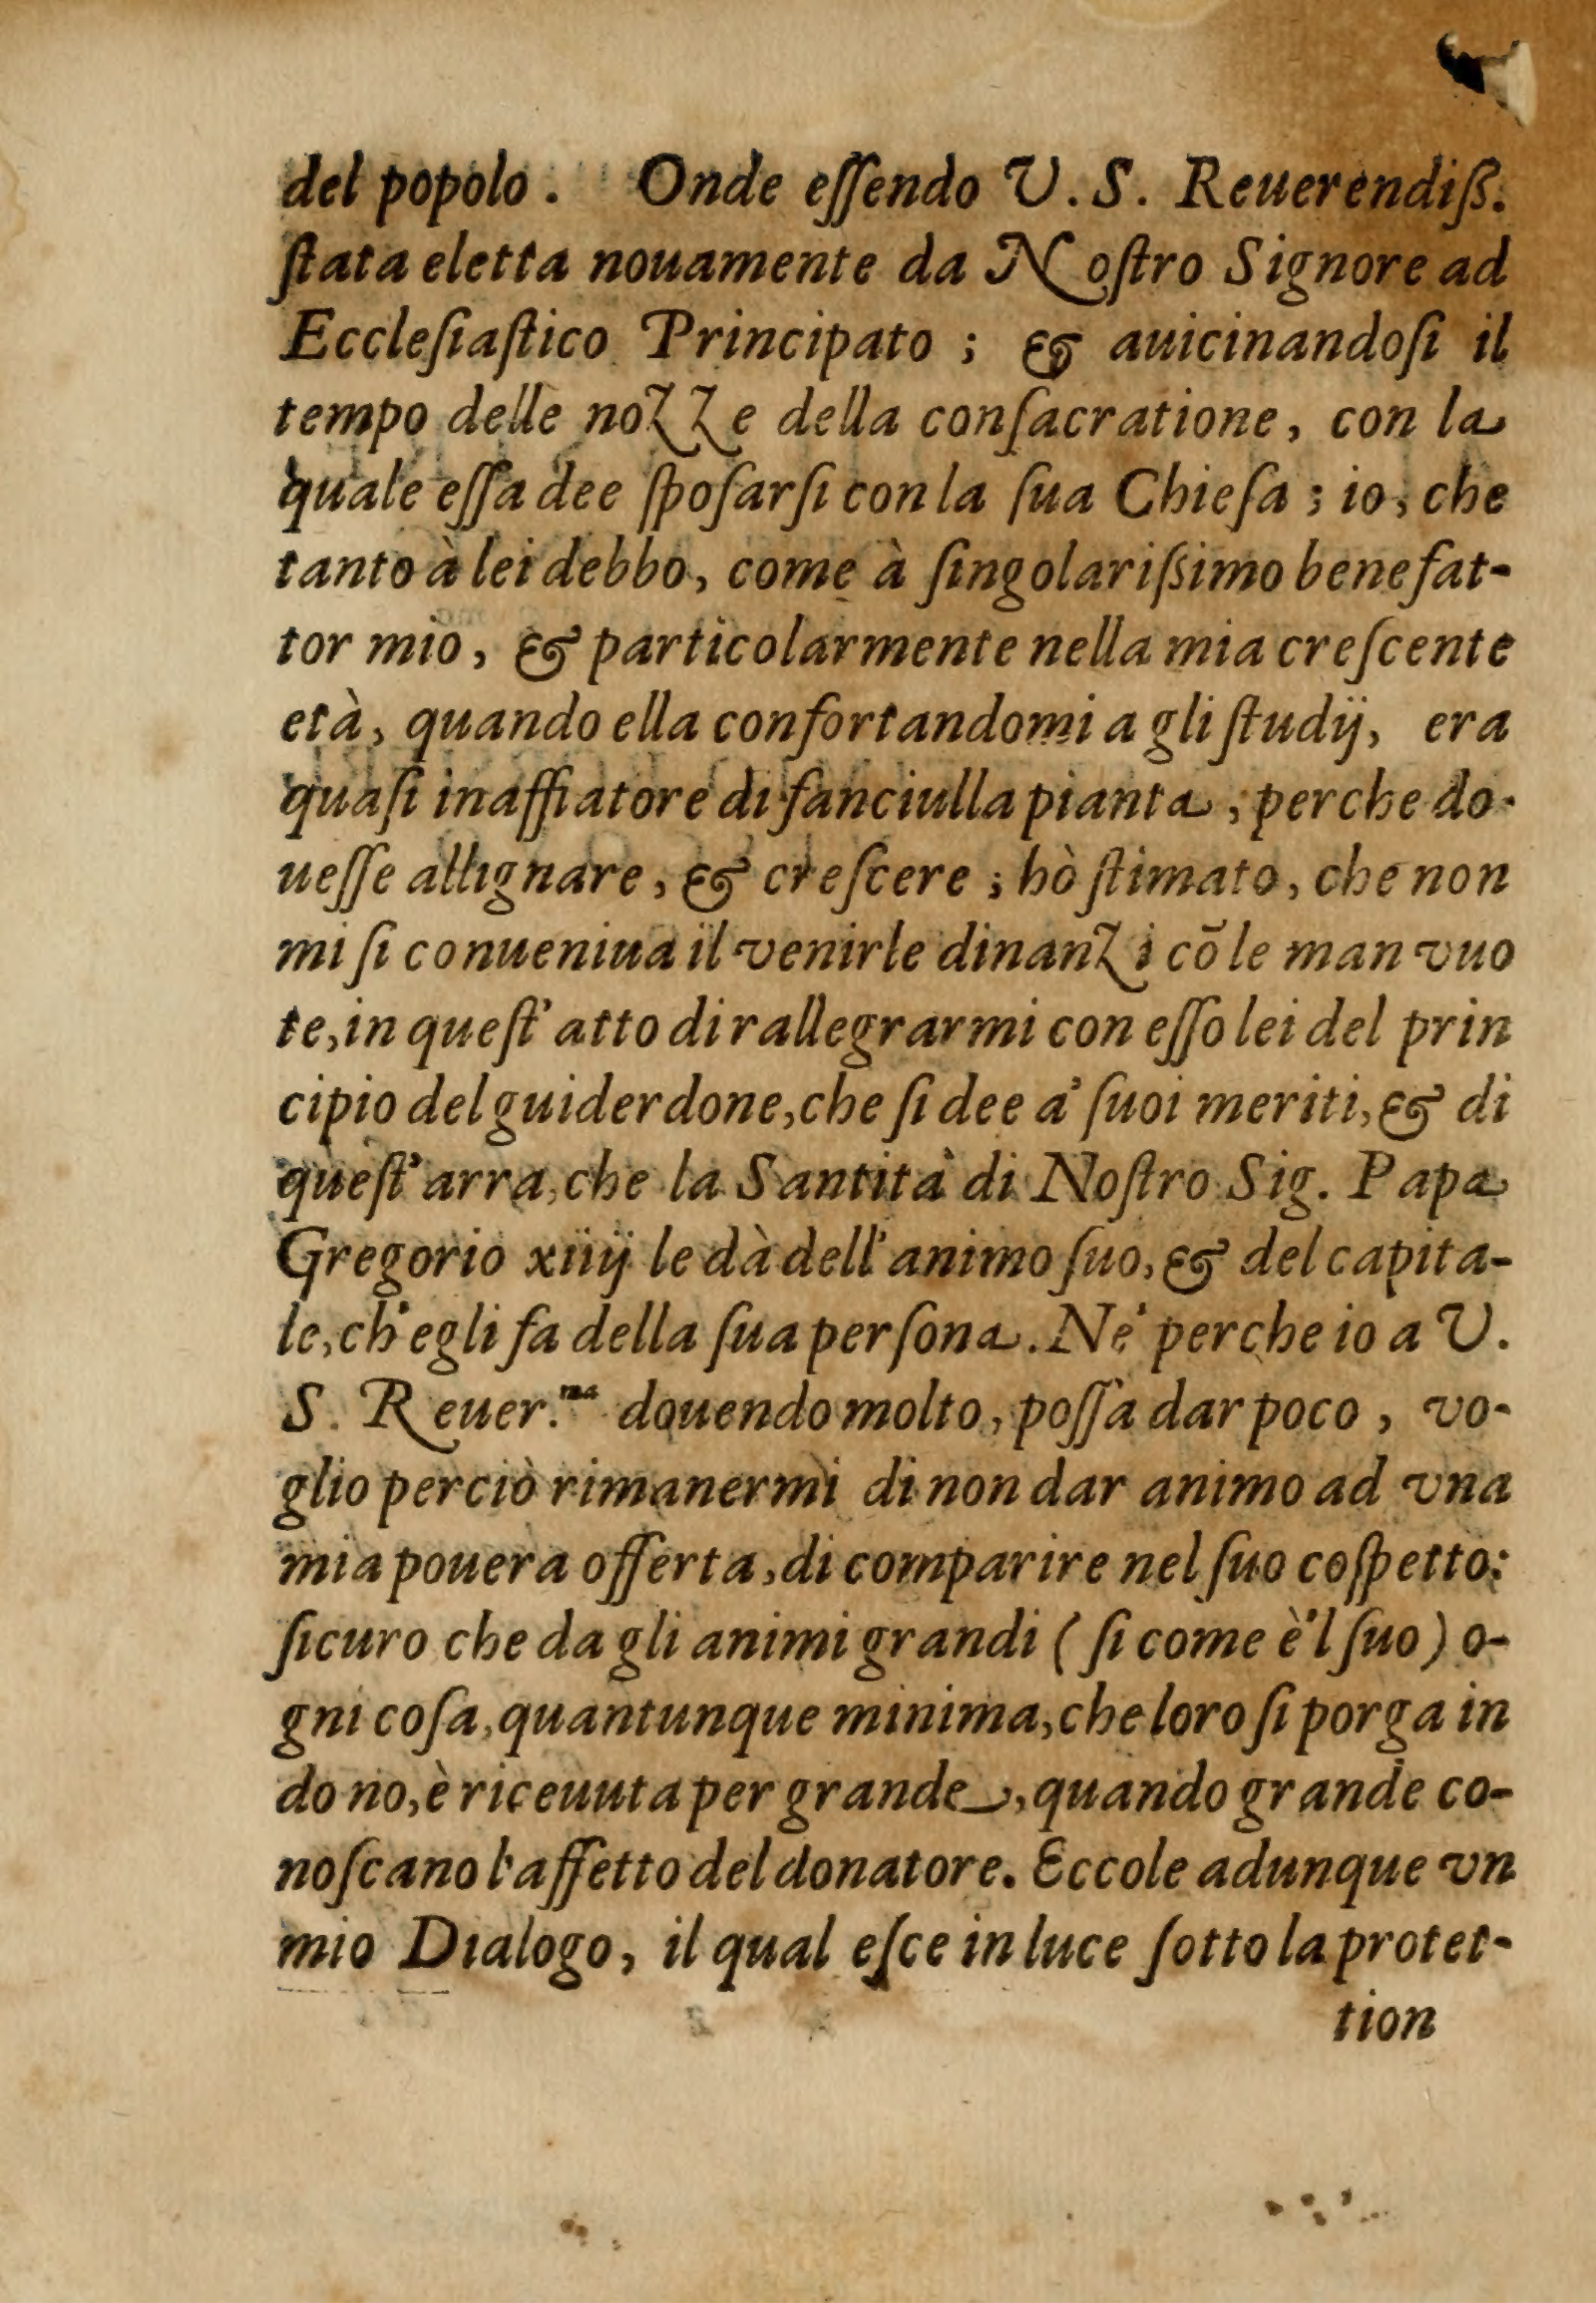 del popolo. Onde eſſendo V.S. Reuerendiß.
ſtata eletta nouamente da Noſtro Signore ad
Eccleſiaſtico Principato ; & auicinandoſi il
tempo delle nozze della conſacratione, con la
quale eſſa dee ſpoſarſi con la ſua Chieſa ; io, che
tanto à lei debbo, come à ſingolariſsimo benefat-
tor mio, & particolarmente nella mia creſcente
età, quando ella confortandomi a gli ſtudij, era
quaſi inaffiatore di fanciulla pianta, perche do-
ueſſe allignare, & creſcere ; hò ſtimato, che non
mi ſi conueniua il venirle dinanzi cõ le man vuo
te, in queſt' atto di rallegrarmi con eſſo lei del prin
cipio del guiderdone, che ſi dee a' ſuoi meriti, & di
queſt' arra, che la Santità di Noſtro Sig. Papa
Gregorio xiiij le dà dell' animo ſuo, & del capita-
le, ch'egli fa della ſua perſona. Ne' perche io a V.
S. Reuer.ma douendo molto, poſſa dar poco, vo-
glio perciò rimanermi di non dar animo ad vna
mia pouera offerta, di comparire nel ſuo coſpetto:
ſicuro che da gli animi grandi ( ſi come è'l ſuo ) o-
gni coſa, quantunque minima, che loro ſi porga in
dono, è riceuuta per grande, quando grande co-
noſcano l'affetto del donatore. Eccole adunque vn
mio Dialogo, il qual eſce in luce ſotto la protet-
tion